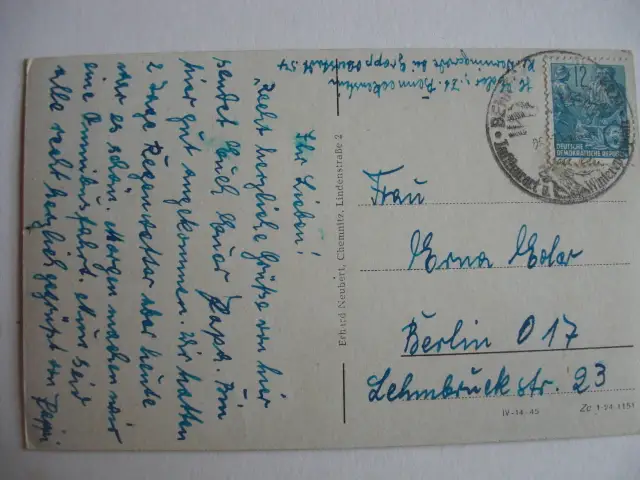 Ihr Lieben!
Recht herzliche Grüße von hier
sendet Euch Euer Papa. Bin
hier gut angekommen. Wir hatten
2 Tage Regenwetter aber heute
war es schön. Morgen machen wir
eine Omnibusfahrt. Nun seid
alle recht herzlich gegrüßt von Pappi
Erhard Neubert, Chemnitz, Lindenstraße 2
12
DEUTSCHE
DEMOKRATISCHE REPUBLIK
Luftkurort u.
Frau
Erna Eder
Berlin O 17
Lehmbruckstr. 23
IV-14-45 Zc 1-24 1151